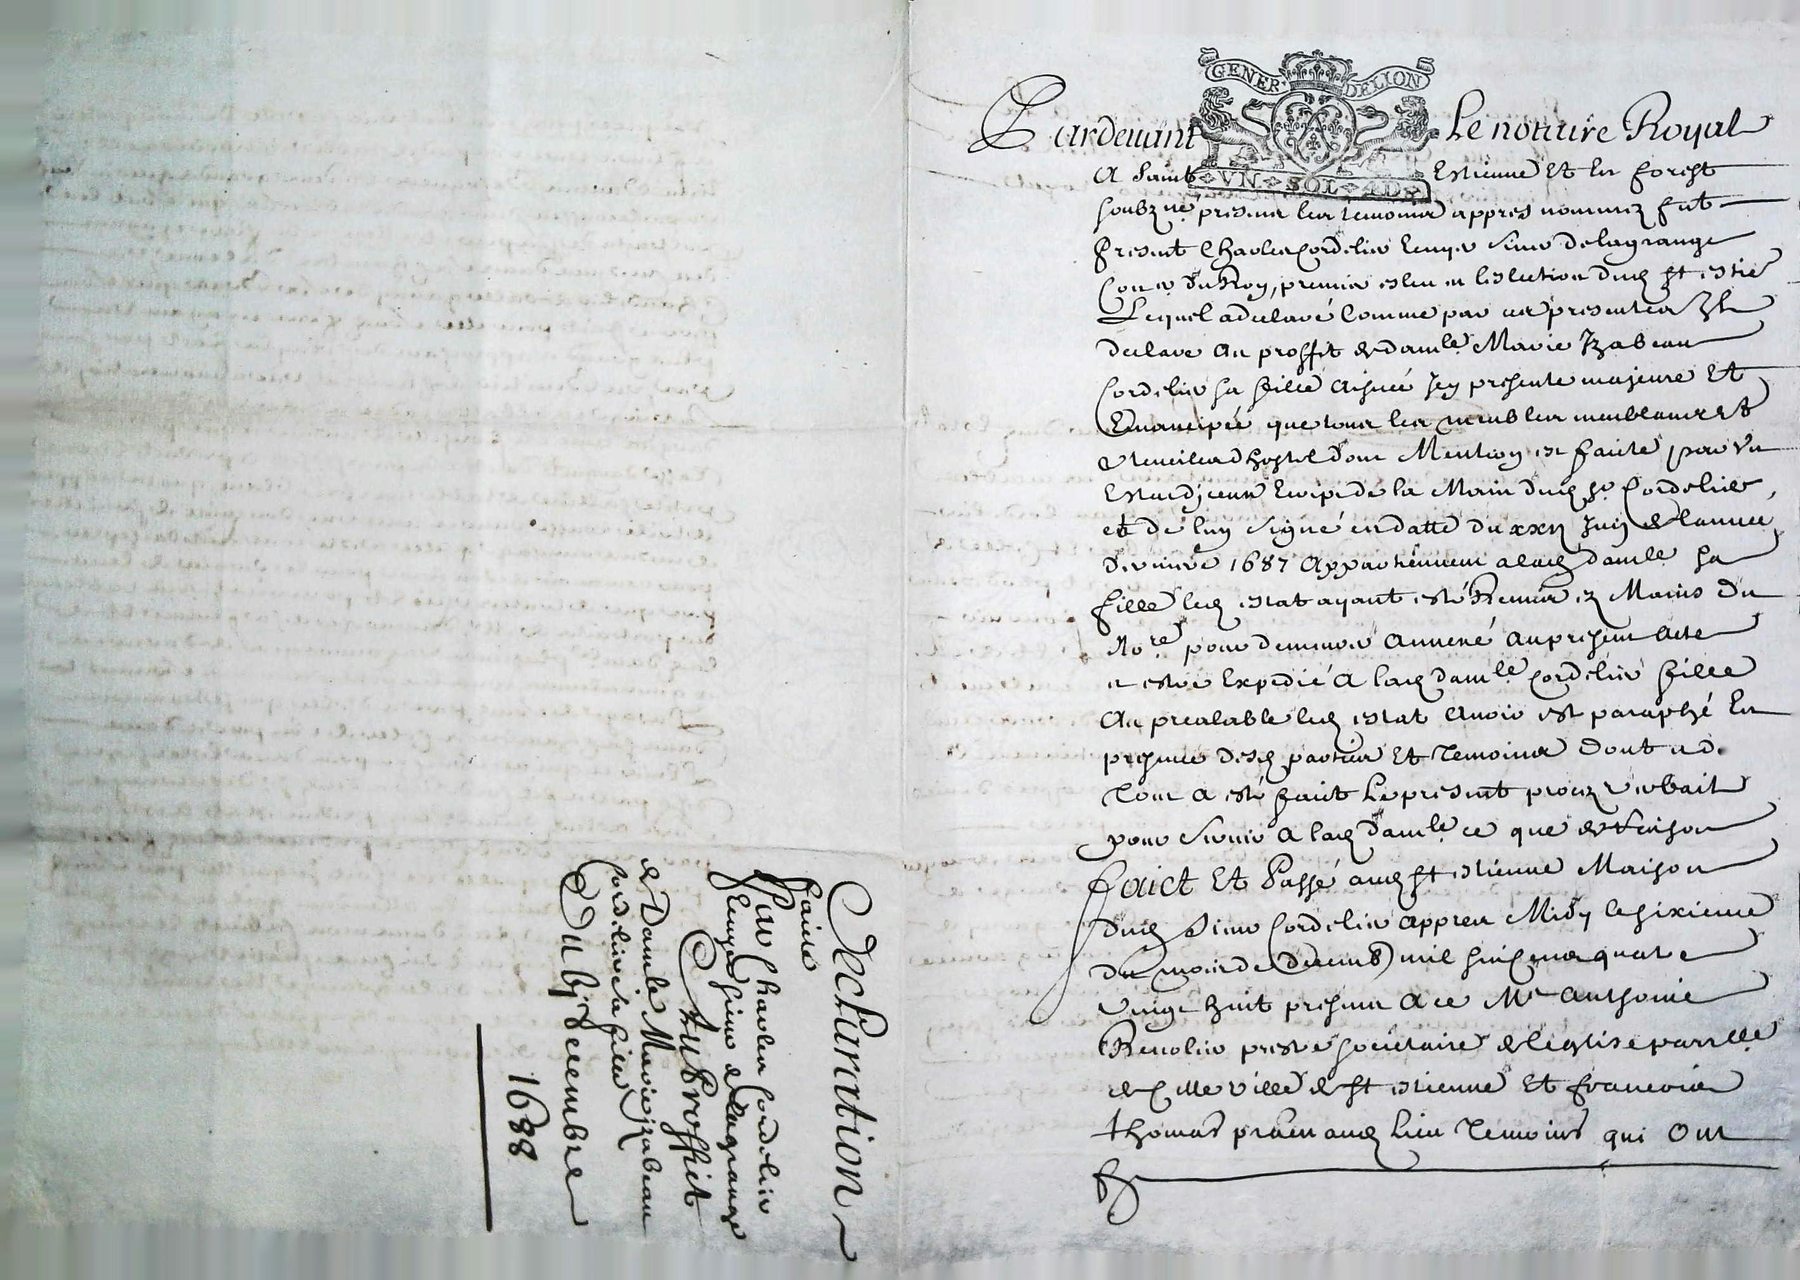 GENER DELION
VN SOL 4D
Pardeuant Le notaire Royal
A Saint Estienne Et en forest
soubzne presens les temoins appres nommez fut
Present Charles Cordelier Escuyer Sieur delagrange
Coner du Roy, premier esleu en leslection dud St estie
Lequel a declaré Comme par ces presentes Il
declare Au proffit de damle Marie Izabeau
Cordelier sa fille Aisnee Icy presente majeure Et
Emancipée que tous les meubles meublans Et
Utencilles dhostel dont Mention est faicte par Un
Estat escript de la Main dud sr Cordelier,
et de luy signé en datte du xxii Juin de lannee
derniere 1687 Appartiennent a lad damle sa
fille led estat ayant esté Remis ez Mains du
Nore pour demeurer Annexé au present acte
et estre Expedié A lad damle Cordelier fille
Au prealable led estat Avoir est paraphé En
presence desd parties Et Temoins dont et d.
Tout a esté faict Le present procez verbail
pour seruir A lad damle ce que de Raison
faict Et Passé aud St estienne Maison
dud Sieur Cordelier appres Midy le sixieme
du mois de decemb mil six cens quatre
vingt huit presens A ce Me Anthoine
Renolier prestre societaire de leglise parrlle
de lad ville de St estienne Et francois
thomas praen aud lieu Temoins qui Ont
Declaration
faicte
Par Charles Cordelier
Escuyer sieur delagrange
Au Proffict
de Damlle Marie Izabeau
Cordelier sa fille
Du vje decembre
1688